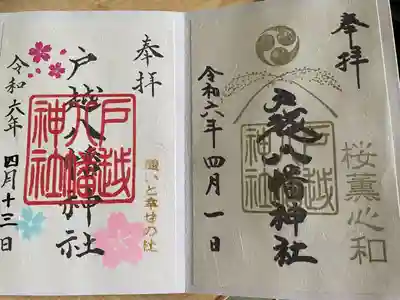 奉拝
桜薫心和
戸越八幡神社
戸越八幡神社
令和六年 四月一日
奉拝
願いと幸せの社
戸越八幡神社
戸越八幡神社
令和六年 四月十三日